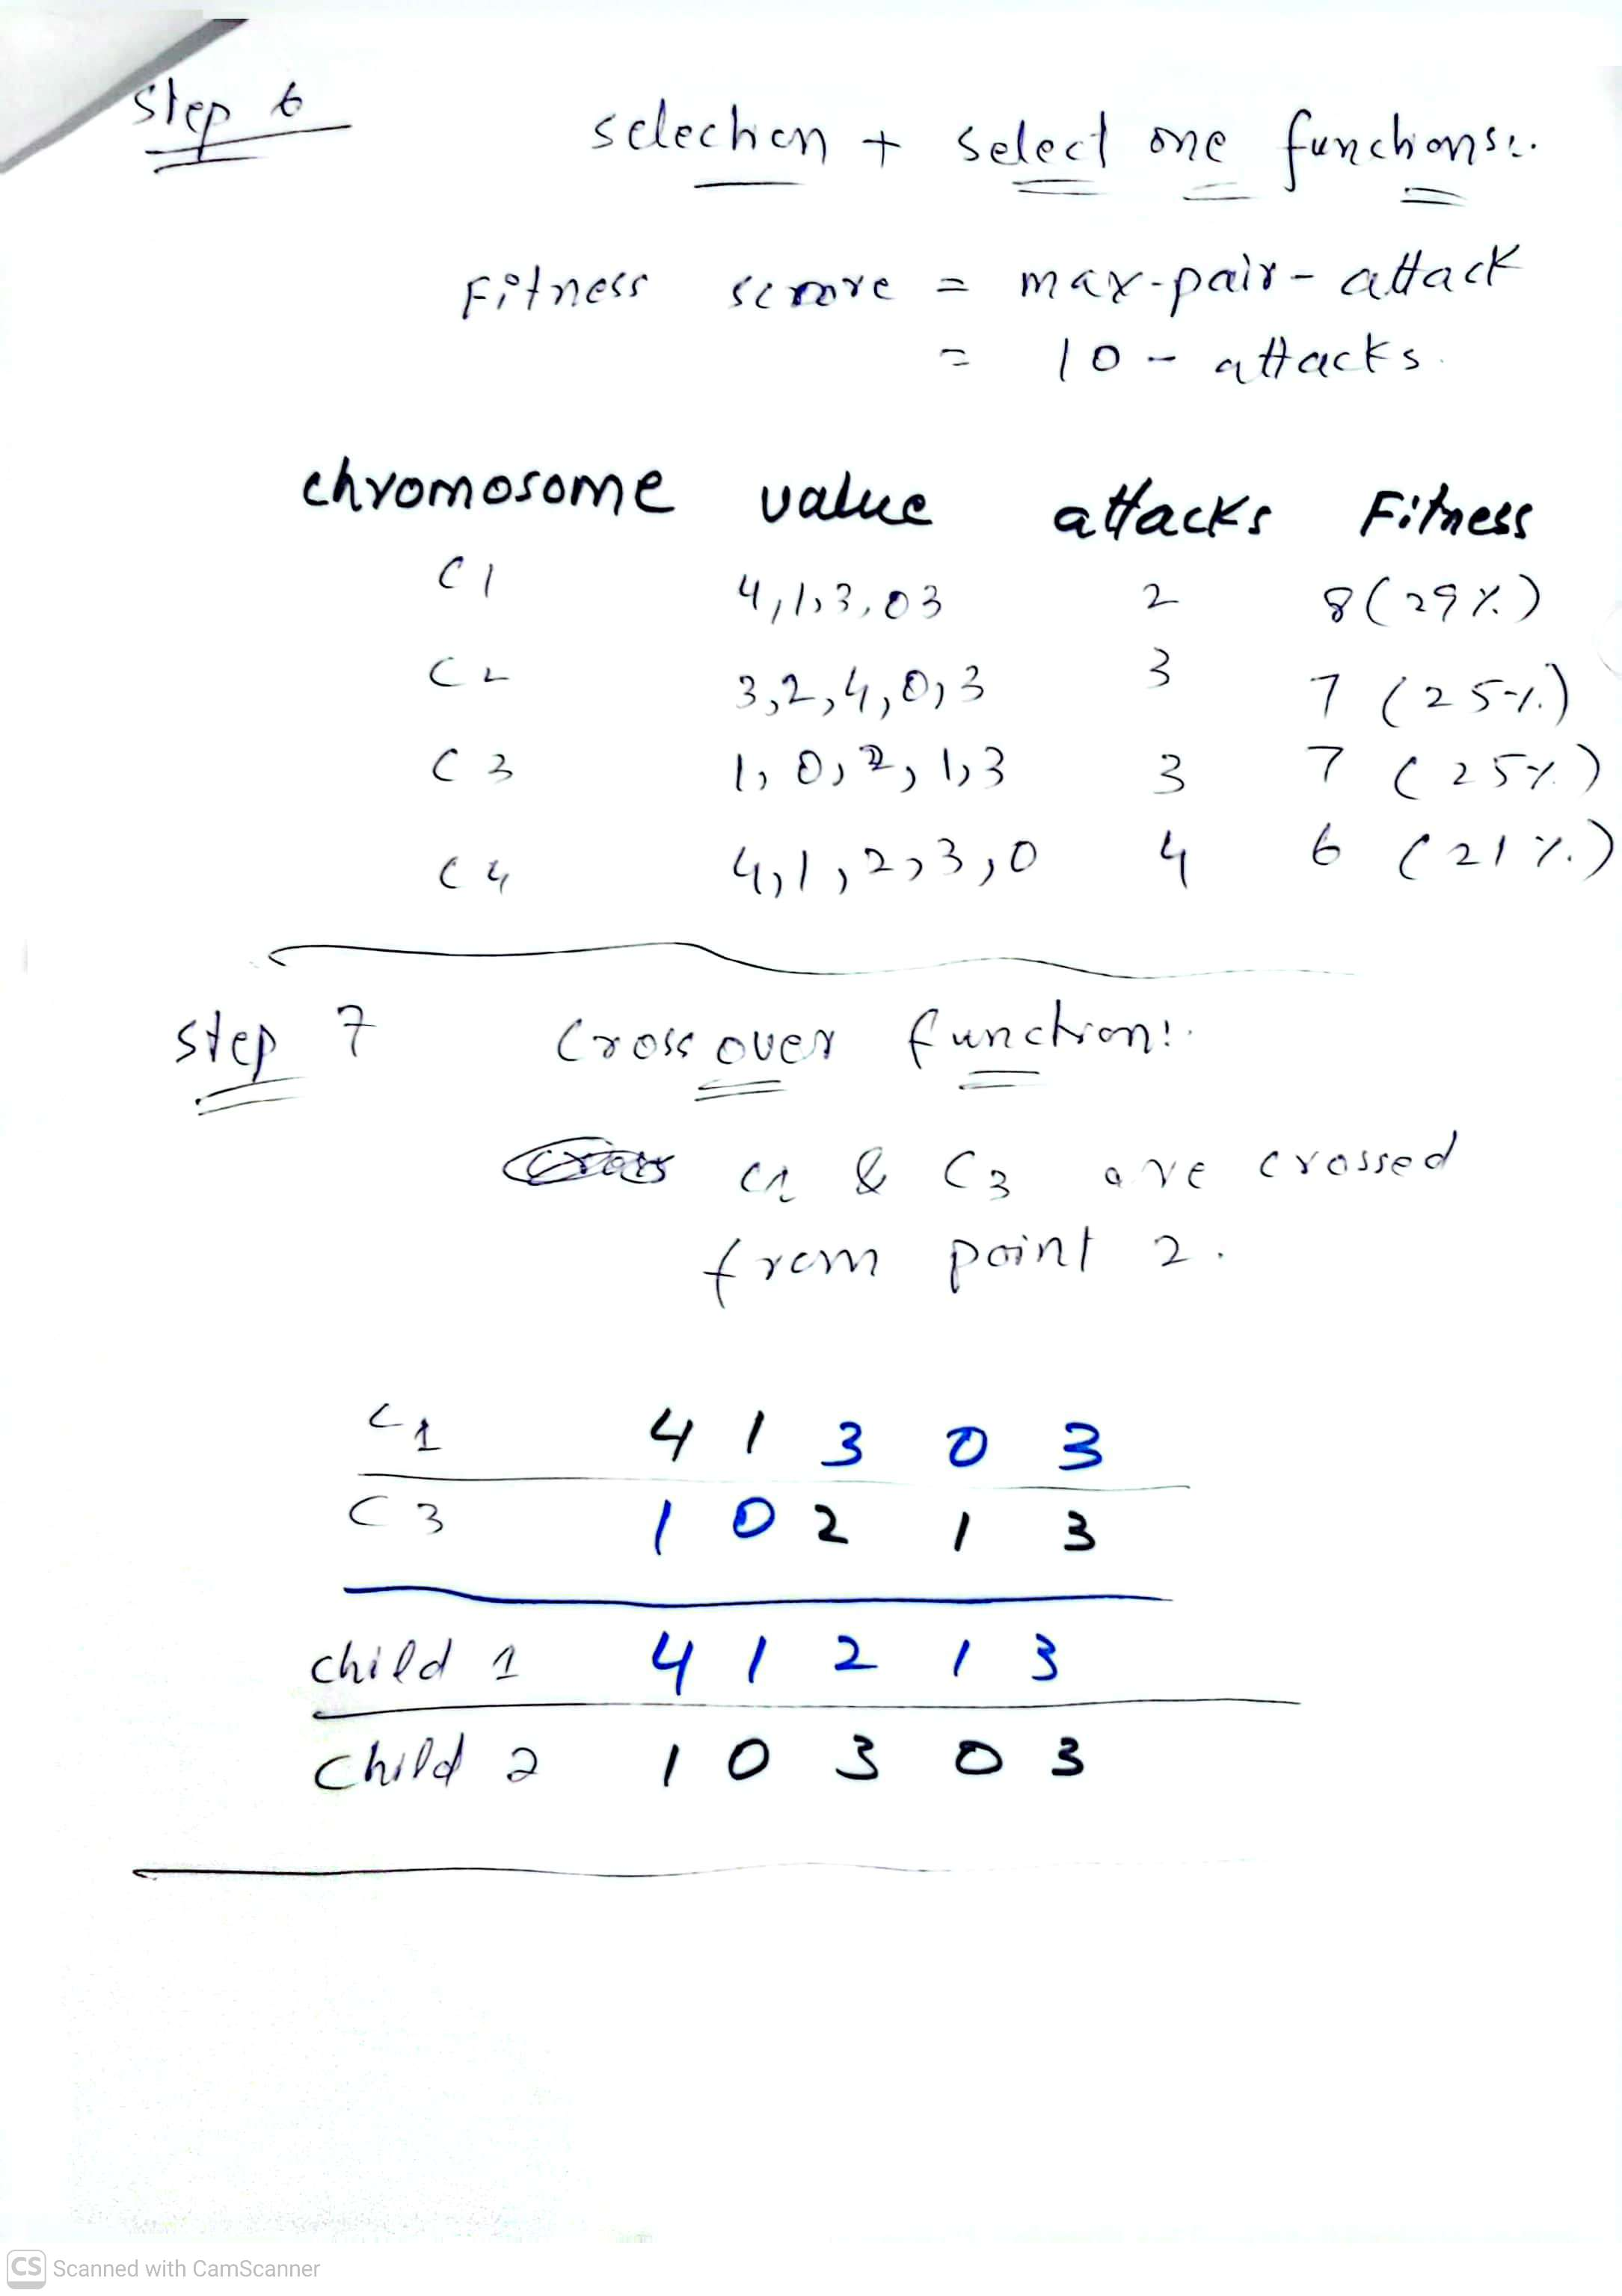 step 6
selection + select one functions:.
Fitness scrore = max-pair-attack
= 10 - attacks.
chromosome value attacks Fitness
C1 4,1,3,03 2 8(29%)
C2 3,2,4,0,3 3 7 (25%)
C3 1,0,2,1,3 3 7 (25%)
C4 4,1,2,3,0 4 6 (21%)
step 7 Crossover function:.
C1 & C3 are crossed
from point 2.
C1 4 1 3 0 3
C3 1 0 2 1 3
child 1 4 1 2 1 3
child 2 1 0 3 0 3
CS Scanned with CamScanner